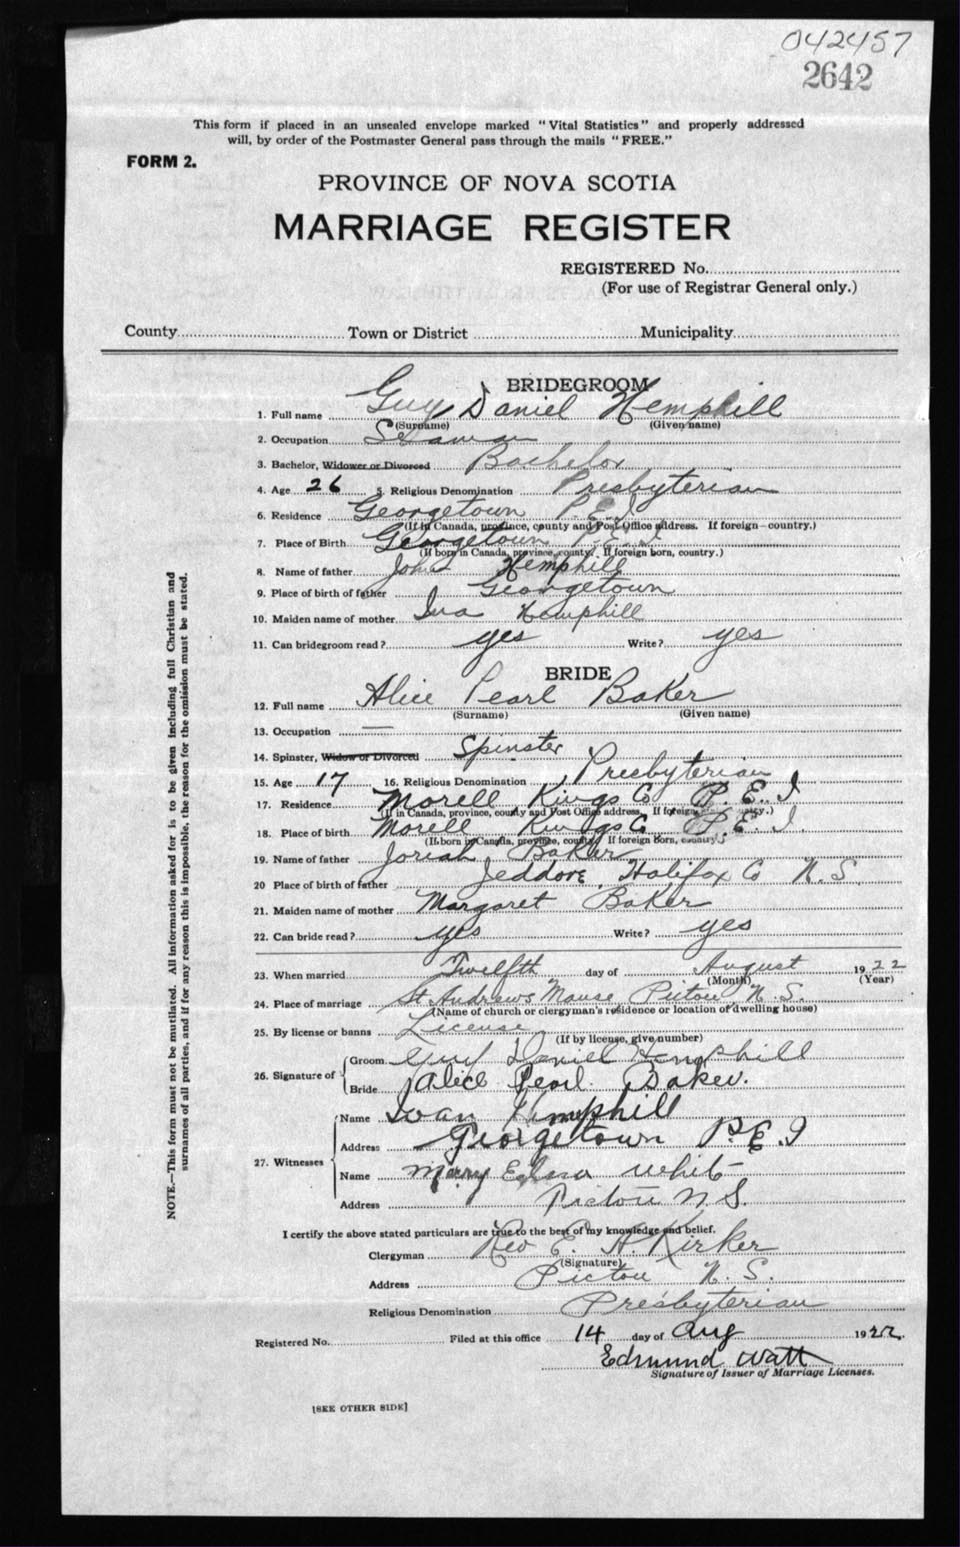 042457
2642
This form if placed in an unsealed envelope marked "Vital Statistics" and properly addressed
will, by order of the Postmaster General pass through the mails "FREE."
FORM 2.
PROVINCE OF NOVA SCOTIA
MARRIAGE REGISTER
REGISTERED No.
(For use of Registrar General only.)
County Town or District Municipality
BRIDEGROOM
1. Full name Guy Daniel Hemphill
(Surname) (Given name)
2. Occupation Seaman
3. Bachelor, Widower or Divorced Bachelor
4. Age 26 5. Religious Denomination Presbyterian
6. Residence Georgetown P.E.I
(If in Canada, province, county and Post Office address. If foreign—country.)
7. Place of Birth Georgetown P.E.I
(If born in Canada, province, county. If foreign born, country.)
8. Name of father John Hemphill
9. Place of birth of father Georgetown
10. Maiden name of mother Ina Hemphill
11. Can bridegroom read? yes Write? yes
BRIDE
12. Full name Alice Pearl Baker
(Surname) (Given name)
13. Occupation —
14. Spinster, Widow or Divorced Spinster
15. Age 17 16. Religious Denomination Presbyterian
17. Residence Morell Kings Co P.E.I
(If in Canada, province, county and Post Office address. If foreign country.)
18. Place of birth Morell Kings Co P.E.I.
(If born in Canada, province, county. If foreign born, country.)
19. Name of father Josiah Baker
20 Place of birth of father Jeddore, Halifax Co N.S.
21. Maiden name of mother Margaret Baker
22. Can bride read? yes Write? yes
23. When married Twelfth day of August 1922
(Month) (Year)
24. Place of marriage St Andrews Manse, Pictou, N.S.
(Name of church or clergyman's residence or location of dwelling house)
25. By license or banns License
(If by license, give number)
26. Signature of Groom Guy Daniel Hemphill
Bride Alice Pearl Baker.
27. Witnesses Name Ivan Hemphill
Address Georgetown P.E.I
Name White
Address Pictou N.S.
I certify the above stated particulars are true to the best of my knowledge and belief.
Clergyman Rev E. A. Kirker
(Signature)
Address Pictou N.S.
Religious Denomination Presbyterian
Registered No. Filed at this office 14 day of Aug 1922.
Edmund Watt
Signature of Issuer of Marriage Licenses.
[SEE OTHER SIDE]
NOTE.—This form must not be mutilated. All information asked for is to be given including full Christian and
surnames of all parties, and if for any reason this is impossible, the reason for the omission must be stated.